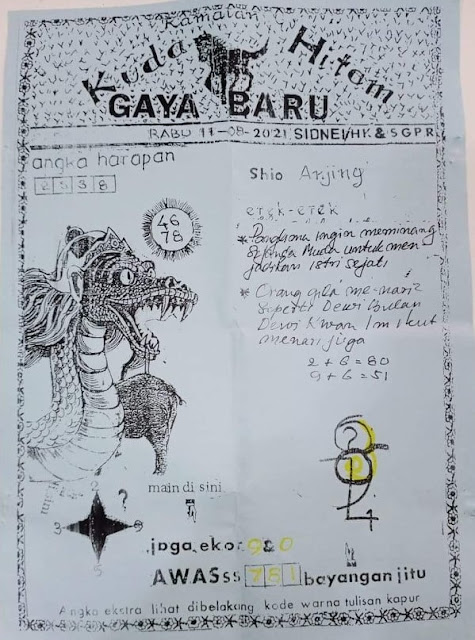 Ramalan
Kuda Hitam
GAYA BARU
RABU 11-08-2021 SIDNEI/HK & SGPR
angka harapan
2538
Shio Anjing
46
78
etek-etek
* Panglima ingin meminang
Bunga Muda untuk men
jadikan istri sejati
* Orang gila me-nari2
seperti Dewi Bulan
Dewi Kwan Im ikut
menari juga
2 + 6 = 80
9 + 6 = 51
2
? 
3
9
5
main di sini
4
jaga ekor 9 & 0
AWASss 781 bayangan jitu
Angka ekstra lihat dibelakang kode warna tulisan kapur